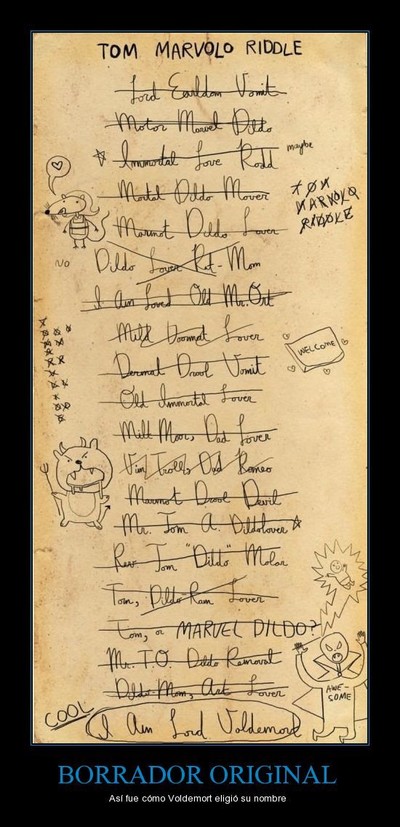 TOM MARVOLO RIDDLE
Lord Earldom Vomit
Motor Marvel Dildo
Immortal Love Rodd
maybe
Mortal Dildo Mover
TOM
MARVOLO
RIDDLE
Marmot Dildo Lover
NO
Dildo Lover Rot-Mom
I Am Loved Old Mr. Ort
Mild Doormat Lover
WELCOME
Dermal Drool Vomit
Old Immortal Lover
Milt Moor, Dad Lover
Vim Troll, Dad Romeo
Marmot Drool Devil
Mr. Tom A. Dildolover
Rev. Tom "Dildo" Molar
Tom, Dildo Ram Lover
Tom, or MARVEL DILDO?
Mr. T.O. Dildo Removal
AWE-
SOME
Dildo Mom, Art Lover
COOL
I Am Lord Voldemort
BORRADOR ORIGINAL
Así fue cómo Voldemort eligió su nombre